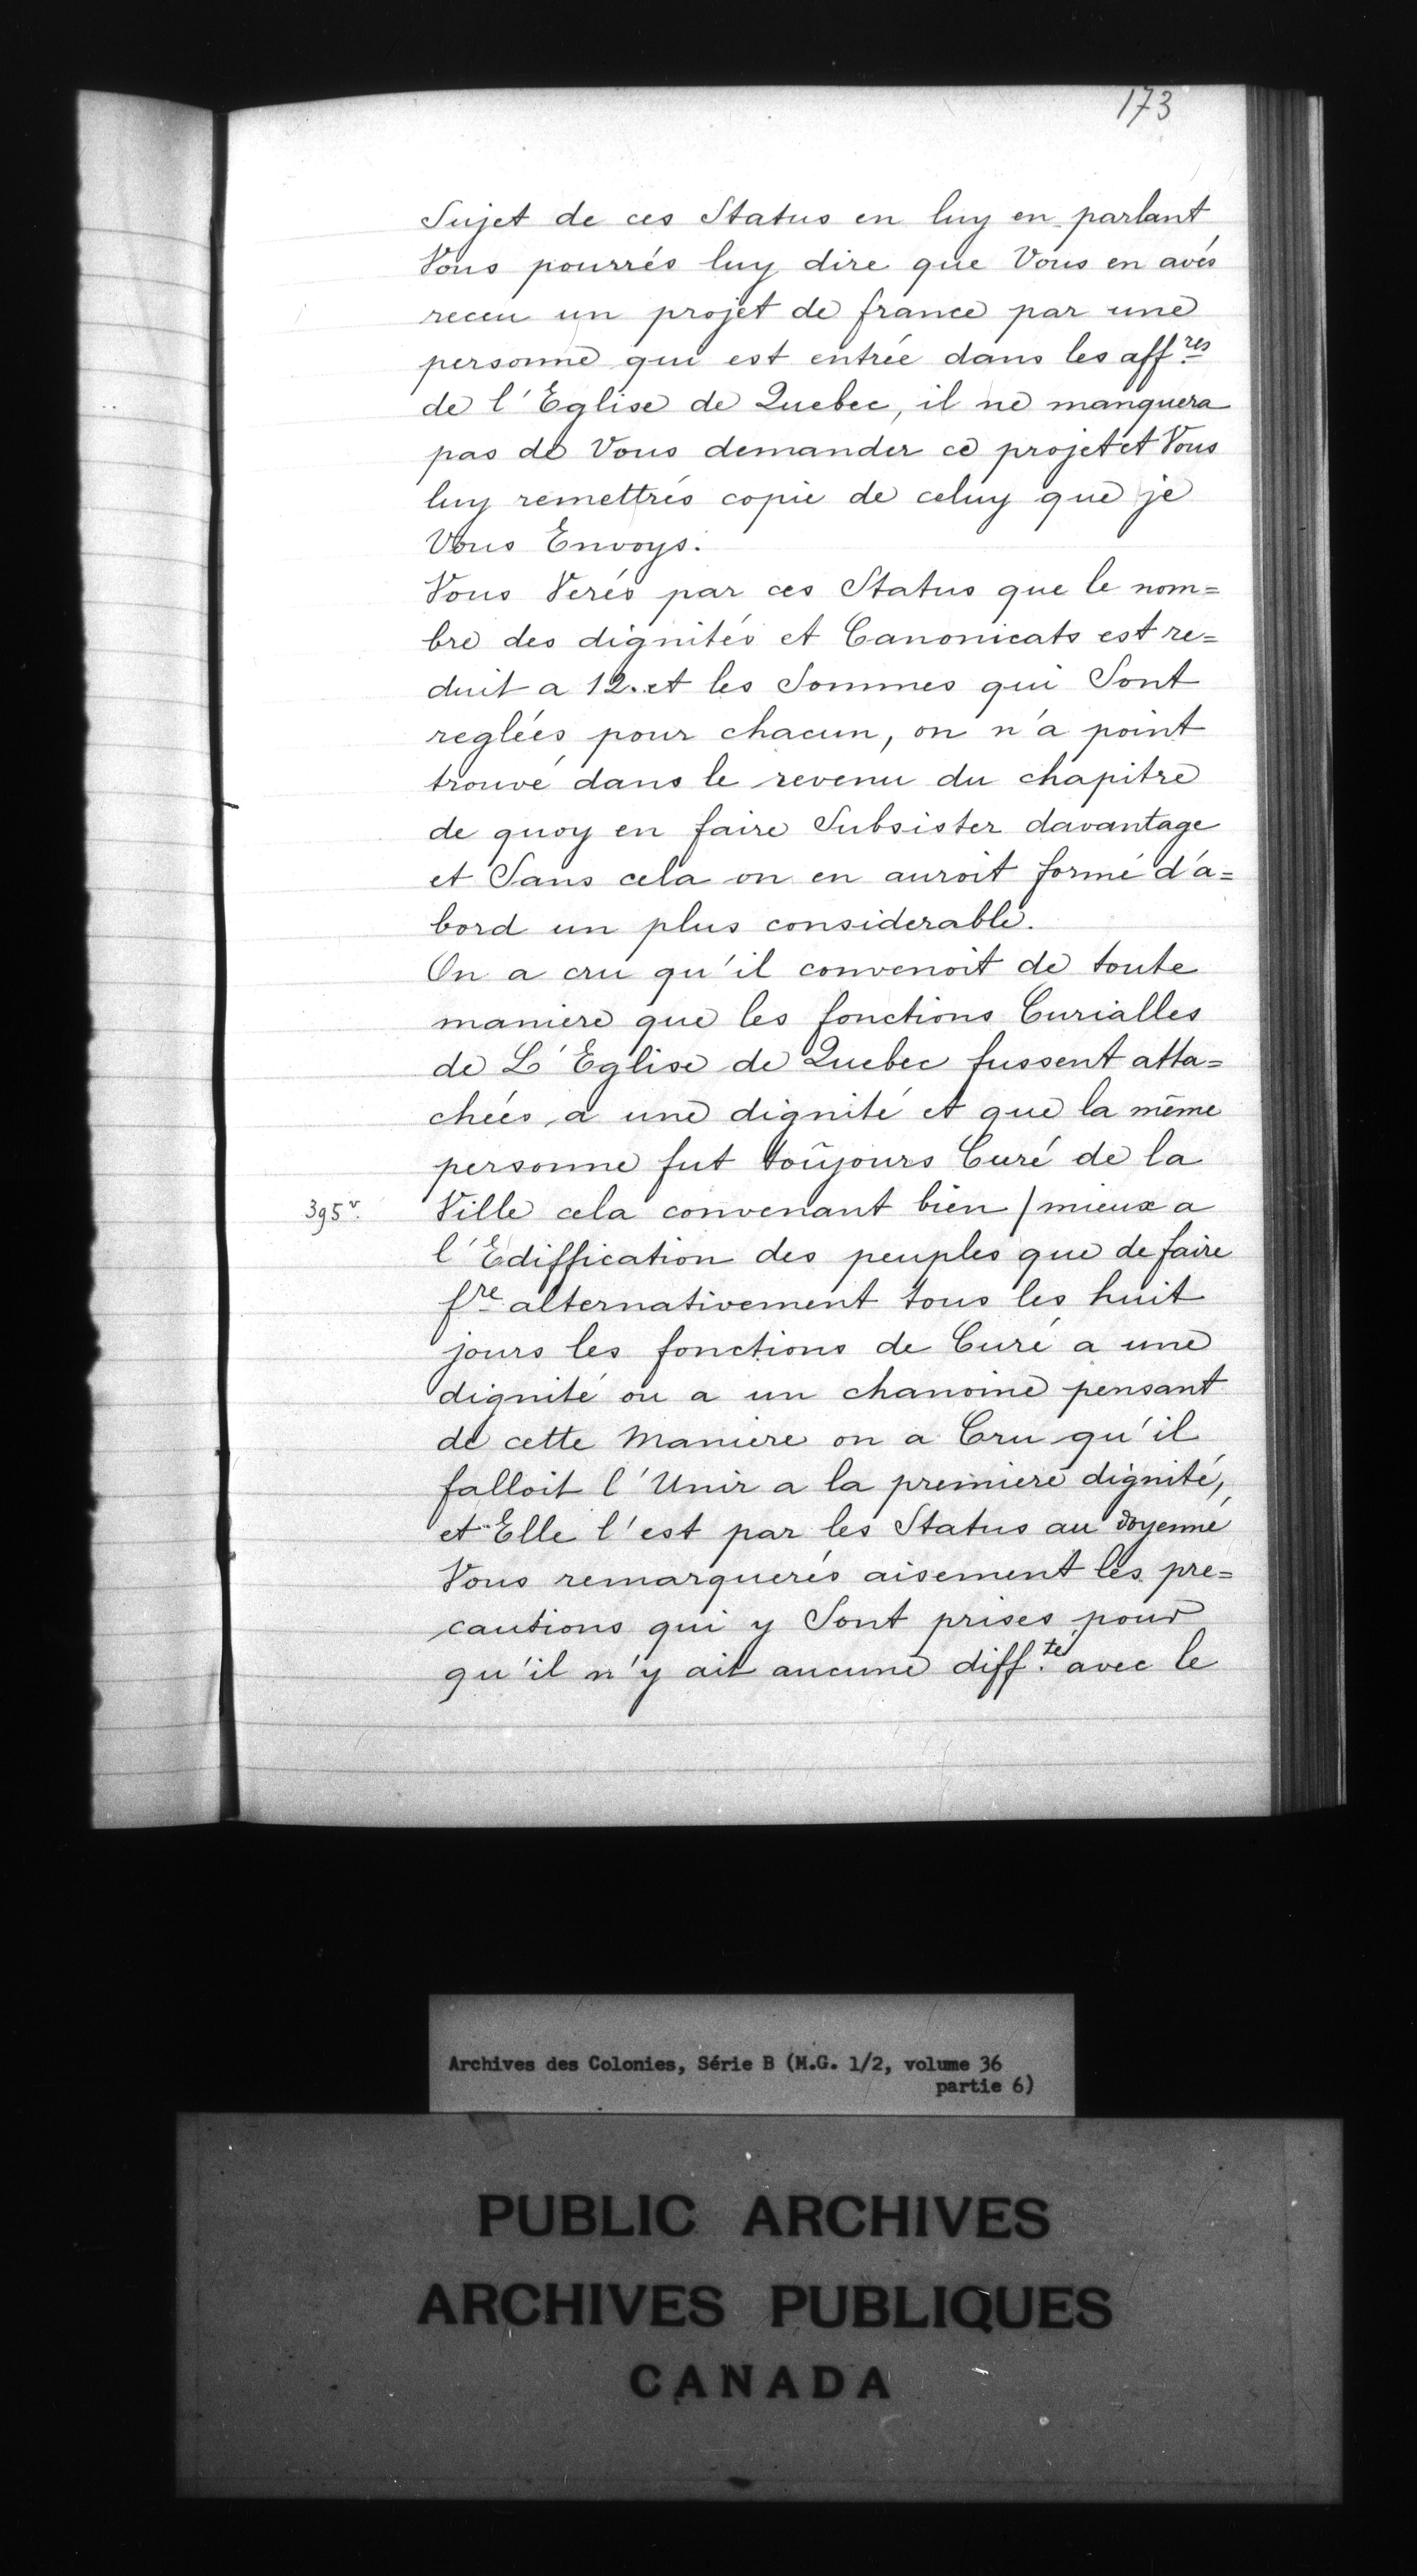 173
Sujet de ces Status en luy en parlant
Vous pourrés luy dire que Vous en avés
receu un projet de france par une
personne qui est entrée dans les aff.res
de l'Eglise de Quebec, il ne manquera
pas de Vous demander ce projet et Vous
luy remettrés copie de celuy que je
Vous Envoys.
Vous Verés par ces Status que le nom=
bre des dignités et Canonicats est re=
duit a 12. et les Sommes qui Sont
reglées pour chacun, on n'a point
trouvé dans le revenu du chapitre
de quoy en faire Subsister davantage
et Sans cela on en auroit formé d'a=
bord un plus considerable.
On a cru qu'il convenoit de toute
maniere que les fonctions Curialles
de L'Eglise de Quebec fussent atta=
chées a une dignité et que la même
personne fut toûjours Curé de la
395 v. Ville cela convenant bien / mieux a
l'Ediffication des peuples que de faire
fre alternativement tous les huit
jours les fonctions de Curé a une
dignité ou a un chanoine pensant
de cette Maniere on a Cru qu'il
falloit l'Unir a la premiere dignité,
et Elle l'est par les Status au doyenné
Vous remarquerés aisement les pre=
cautions qui y Sont prises pour
qu'il n'y ait aucune diff.té avec le
Archives des Colonies, Série B (M.G. 1/2, volume 36
partie 6)
PUBLIC ARCHIVES
ARCHIVES PUBLIQUES
CANADA